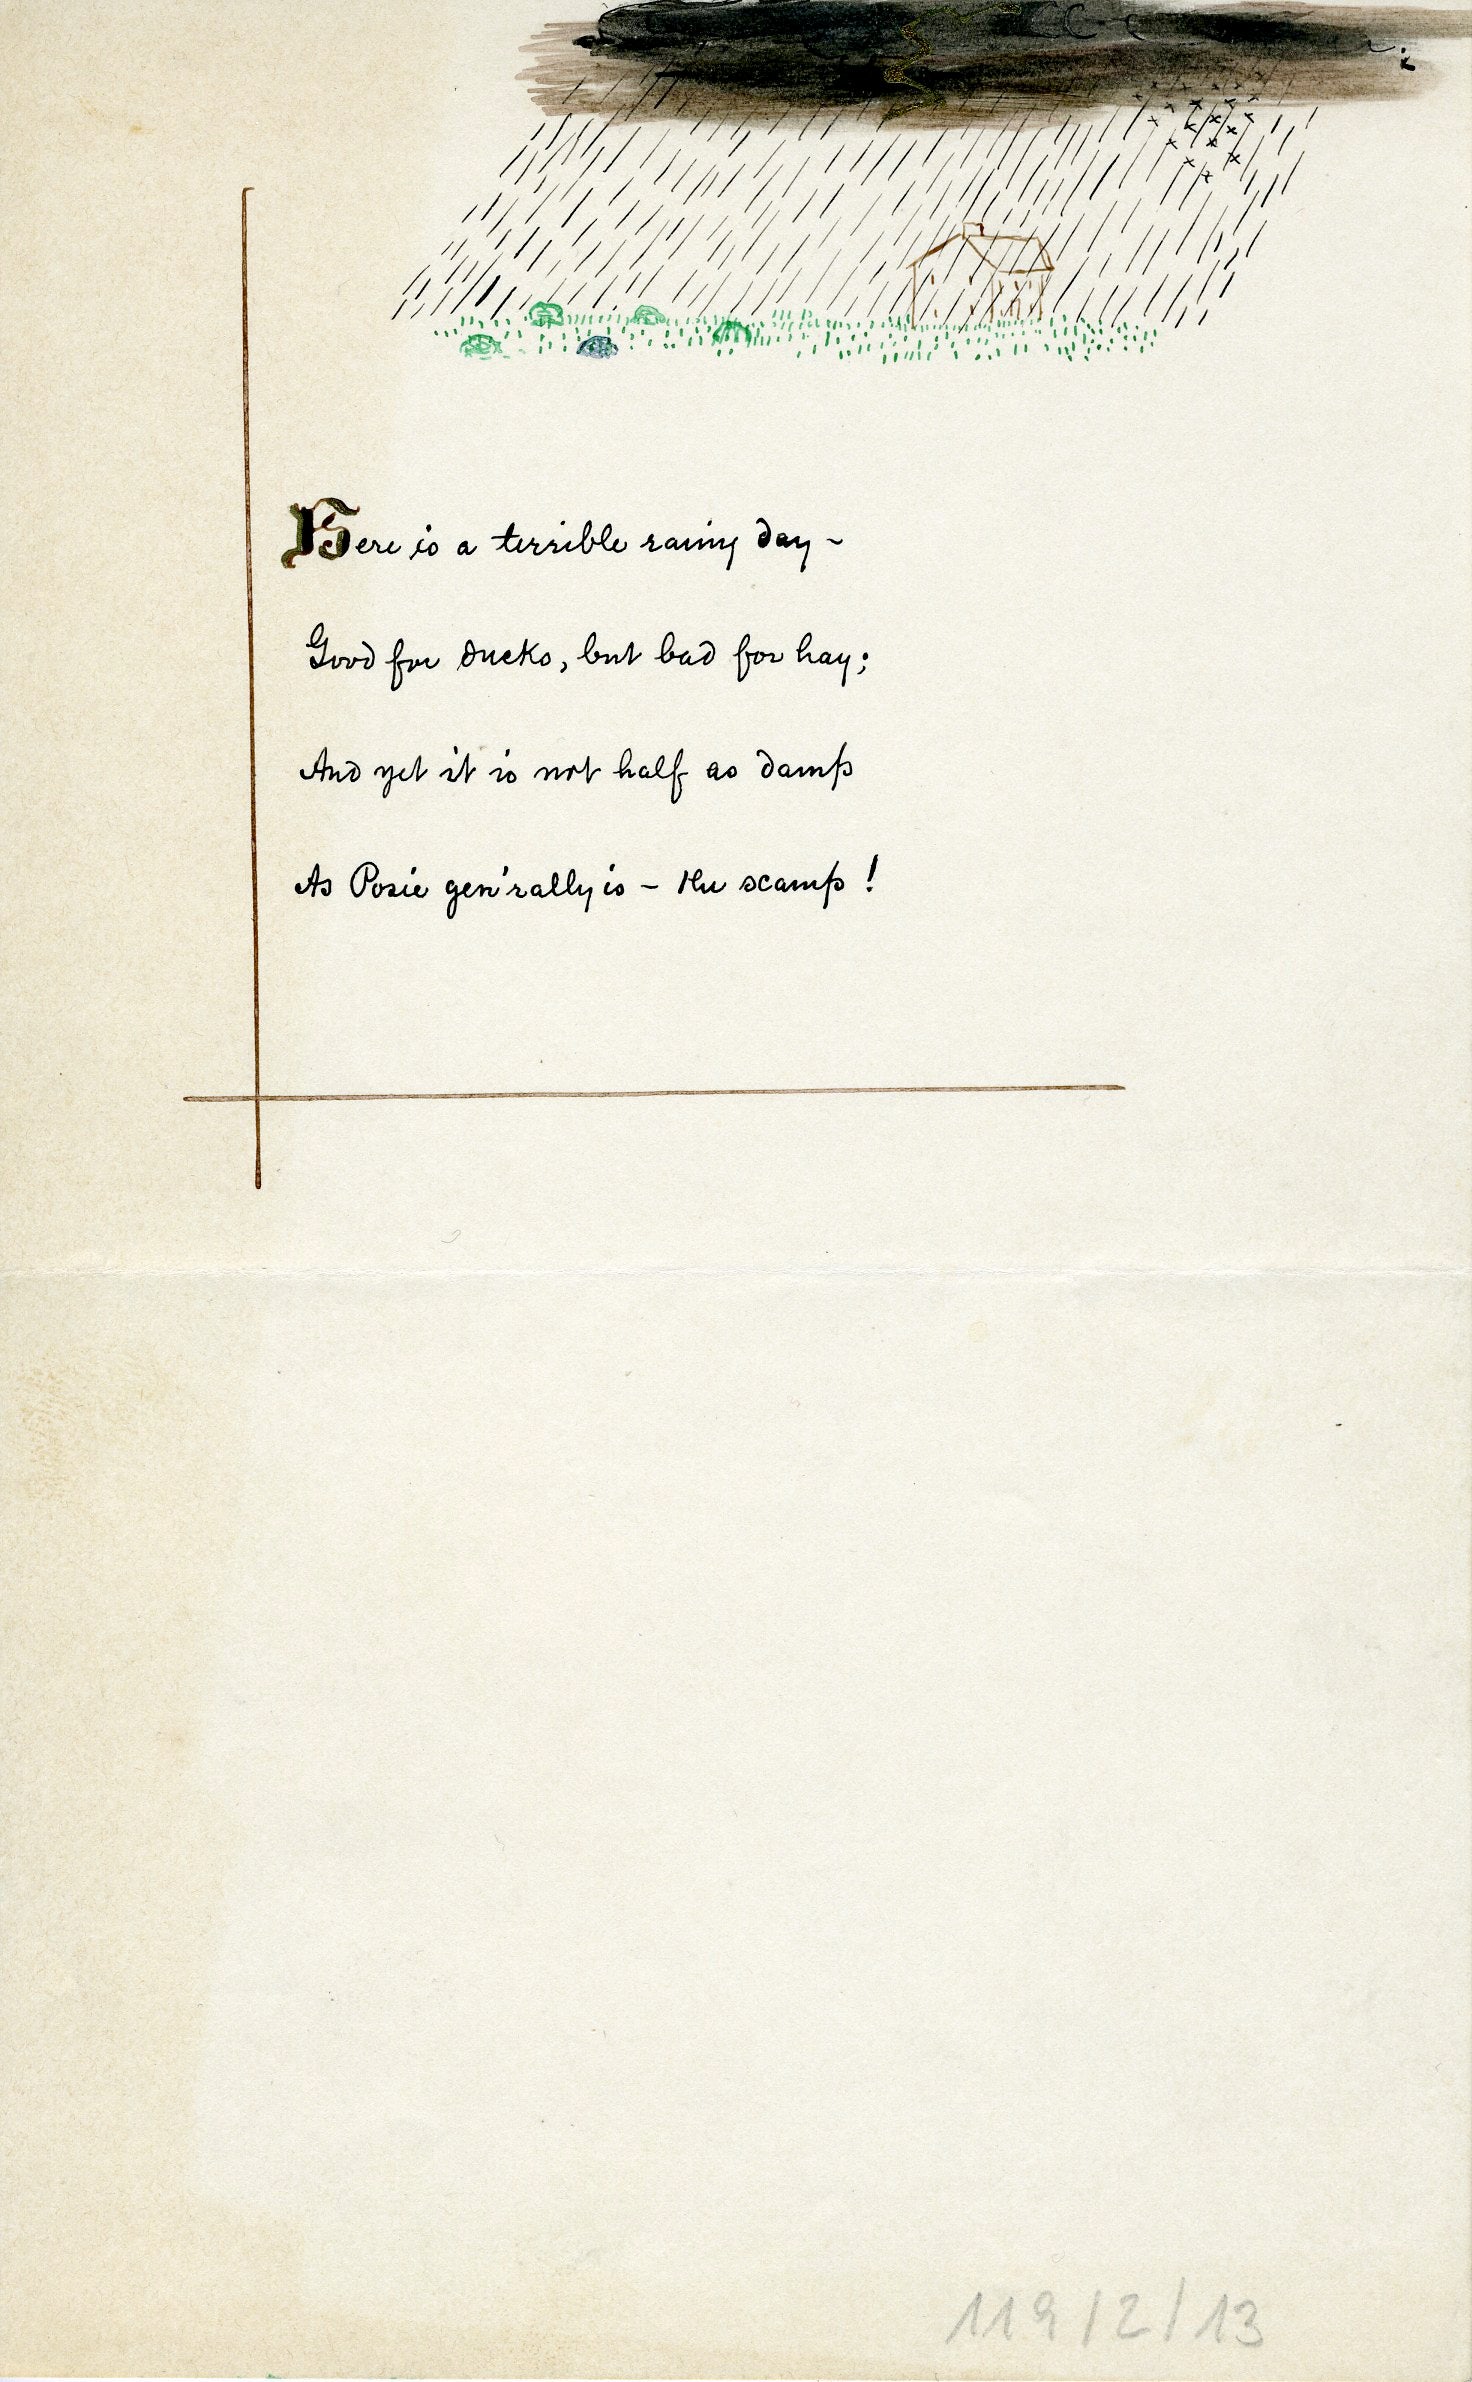 Here is a terrible rainy day –
Good for ducks, but bad for hay;
And yet it is not half as damp
As Posie gen'rally is – the scamp!
119/2/13